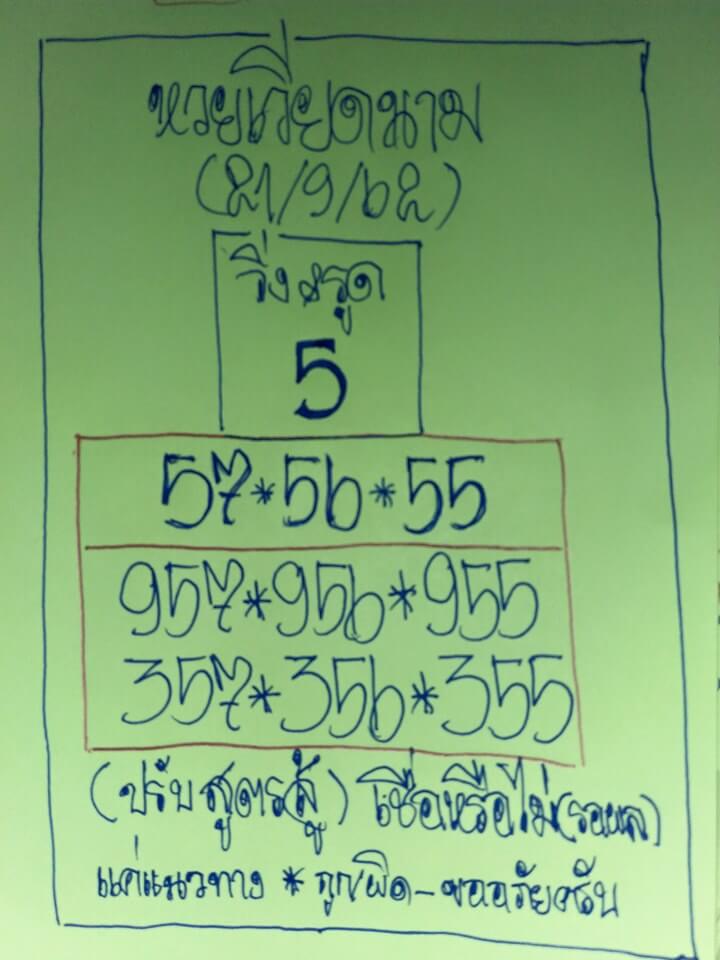 หวยเวียดนาม
(21/9/62)
วิ่งรูด
5
57*56*55
957*956*955
357*356*355
(ปรับสูตรสู้) เชื่อหรือไม่(รอผล)
แค่แนวทาง * ถูกผิด-ขออภัยครับ